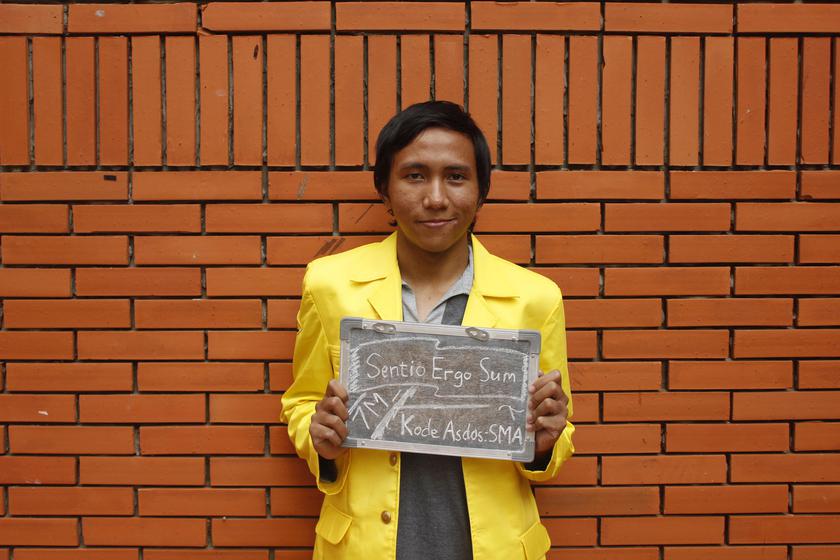 Sentio Ergo Sum
Kode Asdos:SMA